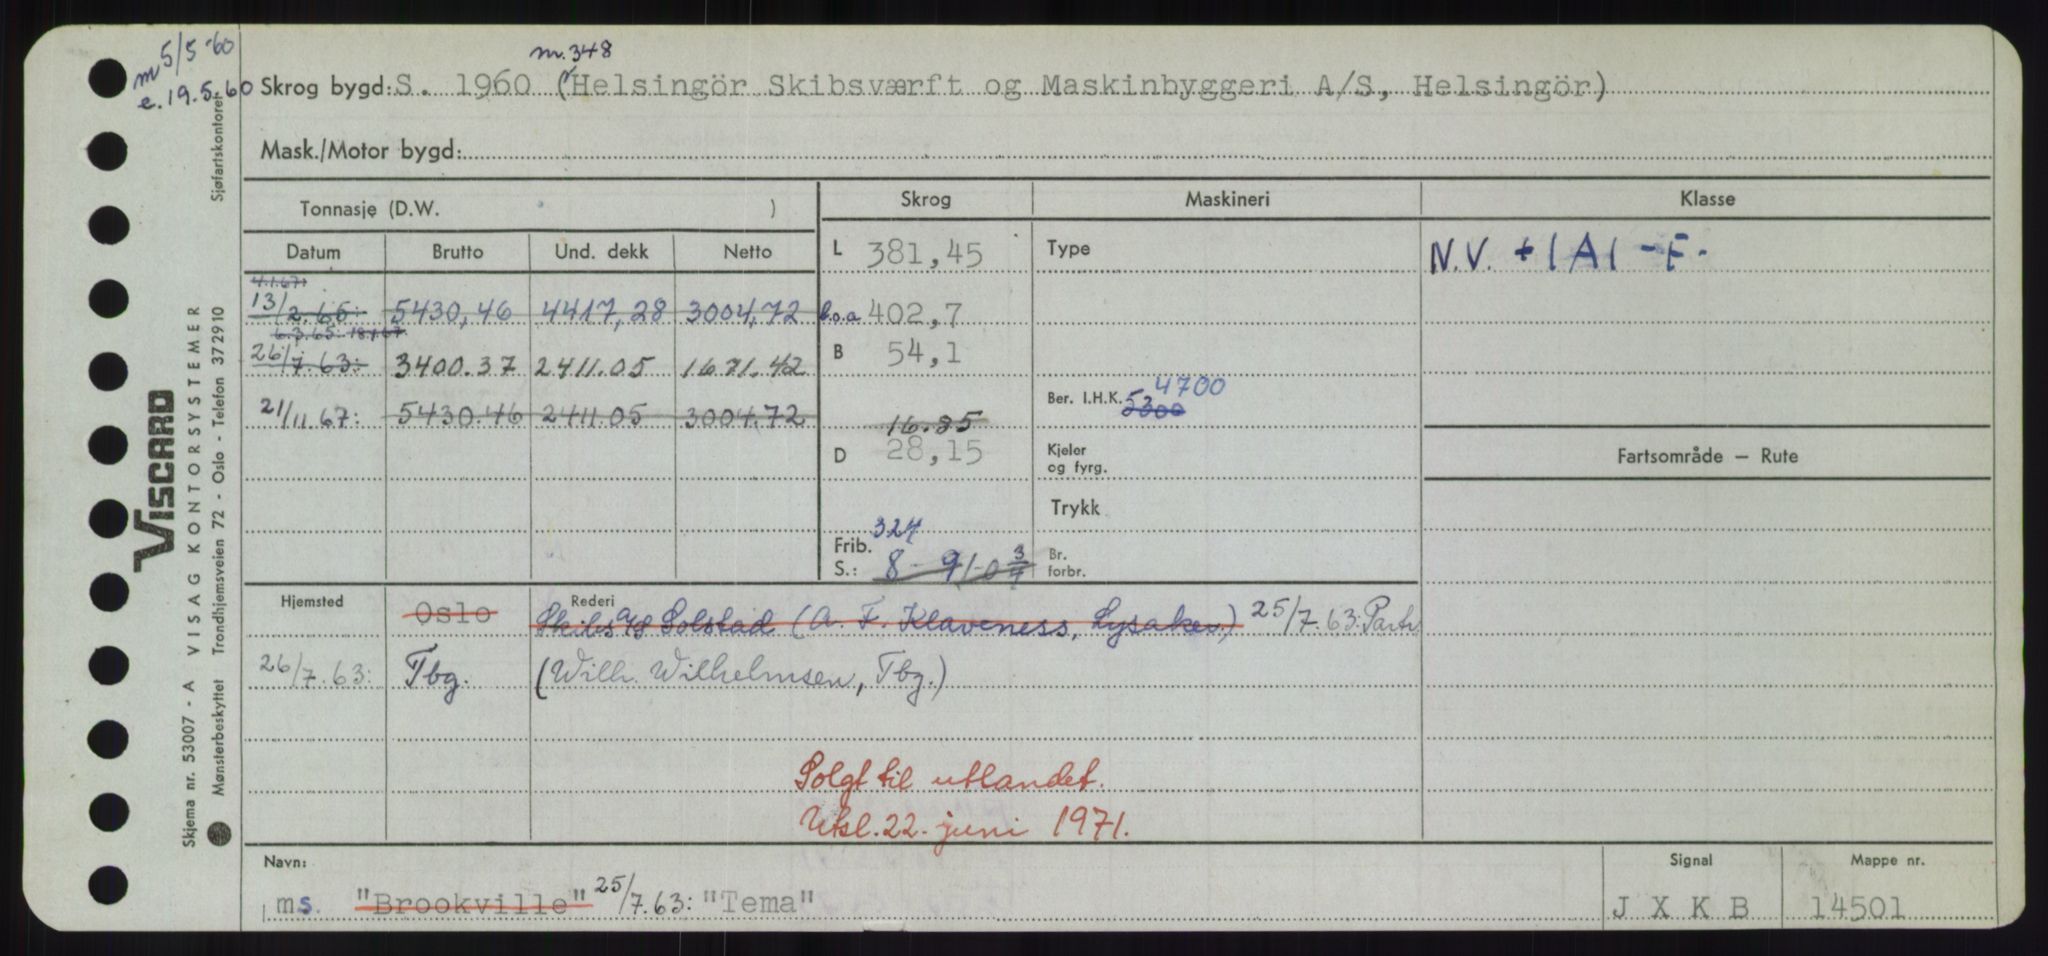 m 5/5-60
e. 19.5.60
nr. 348
Skrog bygd: S. 1960 (Helsingör Skibsværft og Maskinbyggeri A/S, Helsingör)
Mask./Motor bygd:
Tonnasje (D.W. )
Skrog Maskineri Klasse
Datum Brutto Und. dekk Netto
L 381,45 Type N.V. +1A1 -F-
4.1.67.
13/2.65: 5430,46 4417,28 3004,72 l.o.a 402,7
6.3.65: 18.1.67
26/7.63: 3400.37 2411.05 1671.42 B 54,1
Ber. I.H.K. 5300 4700
21/11.67: 5430.46 2411.05 3004.72 16.85
D 28,15 Kjeler og fyrg.
Fartsområde – Rute
Trykk
Frib. 324
S.: 8 - 9/-0 3/4 Br. forbr.
Hjemsted Oslo Rederi Skibs A/S Solstad (A. F. Klaveness, Lysaker.) 25/7.63: Partr
26/7.63: Tbg. (Wilh. Wilhelmsen, Tbg.)
Solgt til utlandet.
Utsl. 22. juni 1971.
Navn: Signal Mappe nr.
ms. "Brookville" 25/7.63: "Tema" J X K B 14501
Sjøfartskontoret
VISCARD
Skjema nr. 53007 - A VISAG KONTORSYSTEMER
Mønsterbeskyttet Trondhjemsveien 72 - Oslo - Telefon 372910